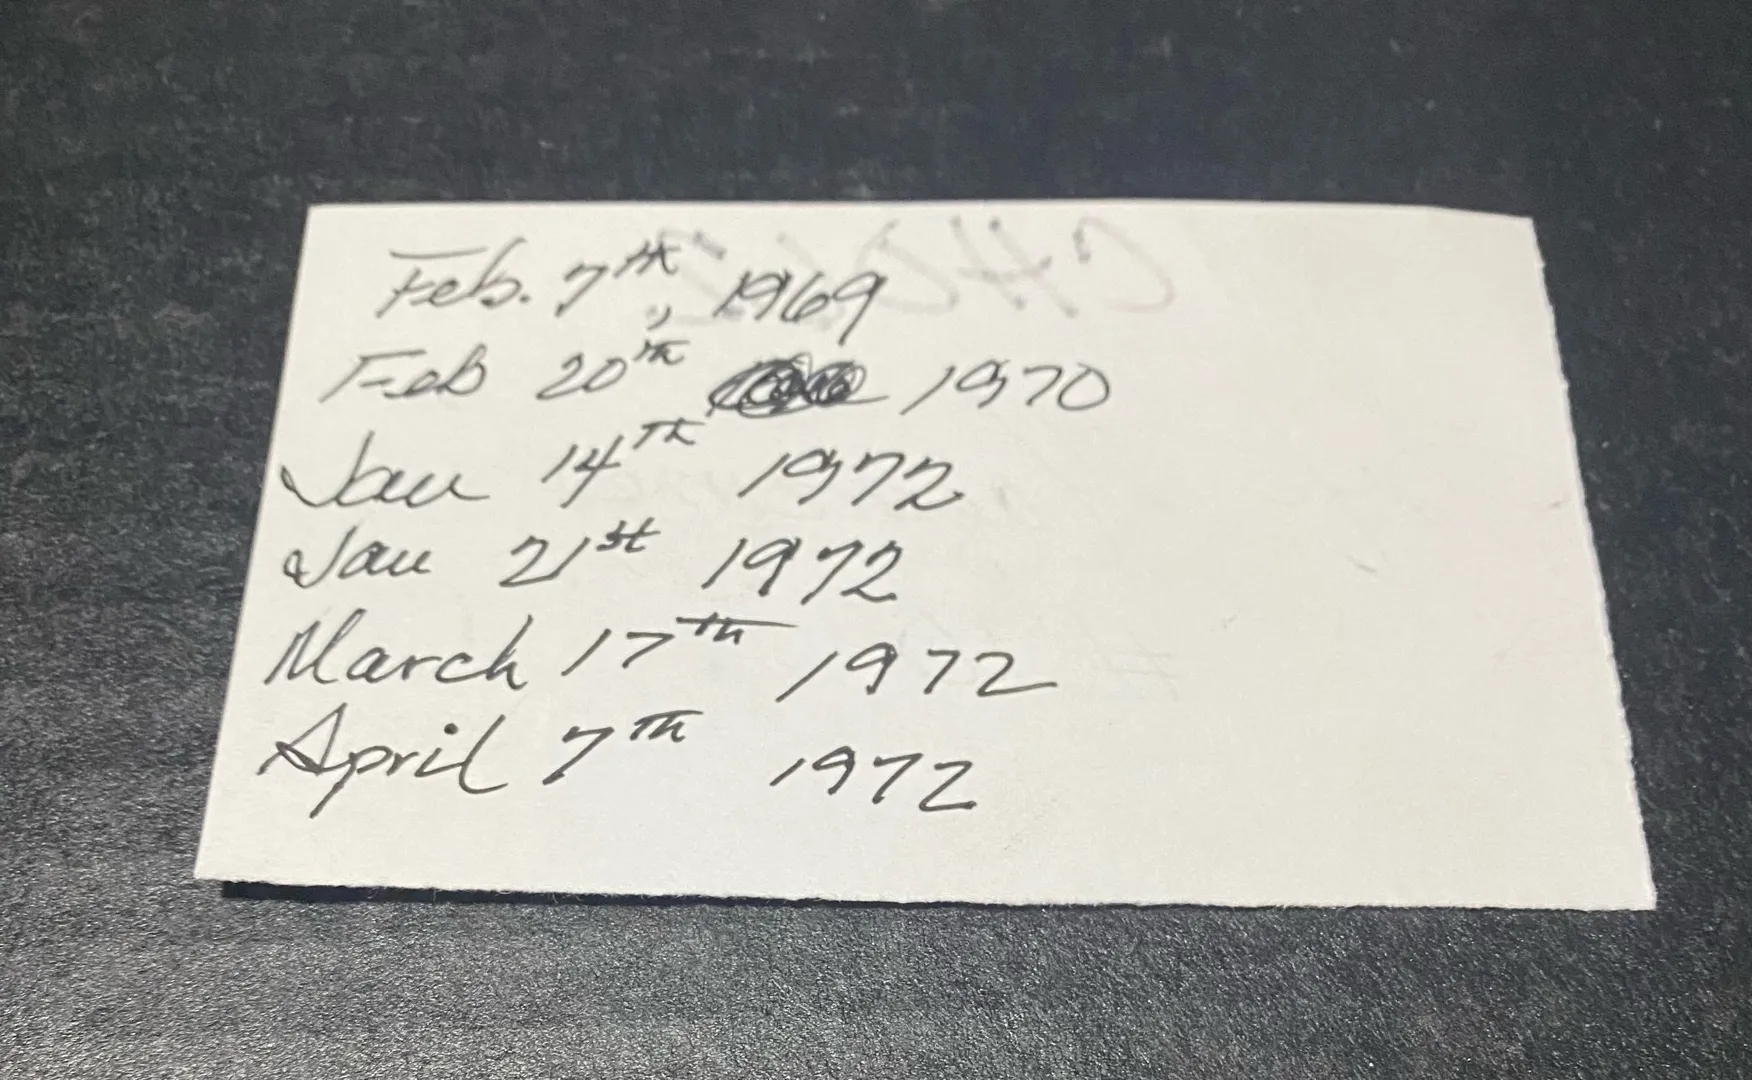 Feb. 7th, 1969
Feb 20th 1970
Jan 14Th 1972
Jan 21st 1972
March 17Th 1972
April 7Th 1972